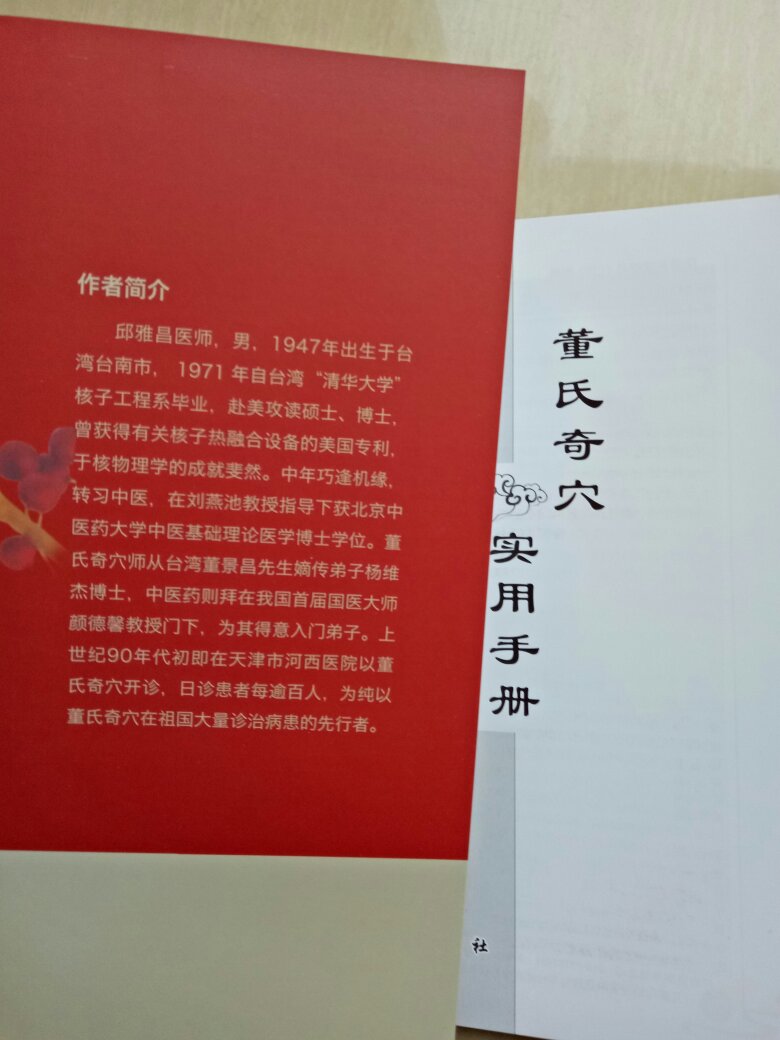 作者简介
邱雅昌医师，男，1947年出生于台
湾台南市， 1971 年自台湾“清华大学”
核子工程系毕业，赴美攻读硕士、博士，
曾获得有关核子热融合设备的美国专利，
于核物理学的成就斐然。中年巧逢机缘，
转习中医，在刘燕池教授指导下获北京中
医药大学中医基础理论医学博士学位。董
氏奇穴师从台湾董景昌先生嫡传弟子杨维
杰博士，中医药则拜在我国首届国医大师
颜德馨教授门下，为其得意入门弟子。上
世纪90年代初即在天津市河西医院以董
氏奇穴开诊，日诊患者每逾百人，为纯以
董氏奇穴在祖国大量诊治病患的先行者。
董氏奇穴
实用手册
社